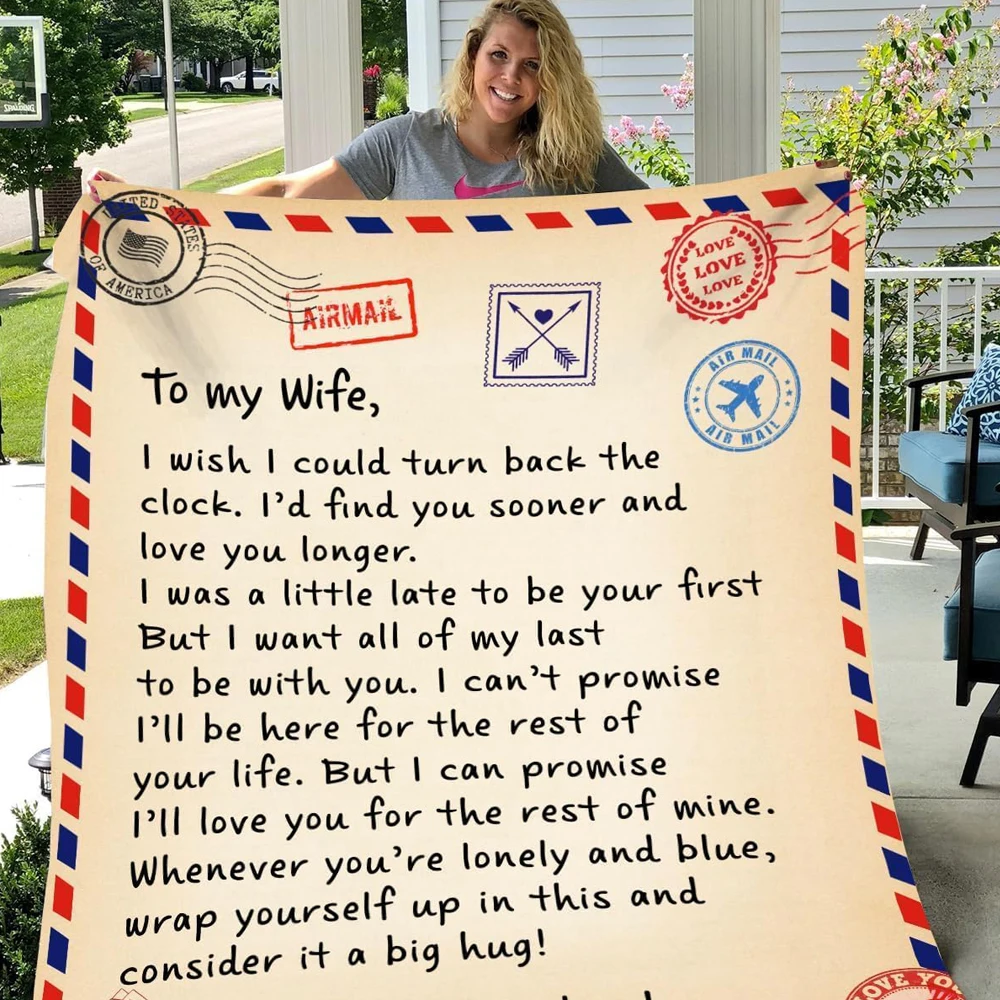 SPALDING
UNITED STATES
OF AMERICA
AIRMAIL
LOVE
LOVE
LOVE
AIR MAIL
AIR MAIL
To my Wife,
I wish I could turn back the
clock. I'd find you sooner and
love you longer.
I was a little late to be your first
But I want all of my last
to be with you. I can't promise
I'll be here for the rest of
your life. But I can promise
I'll love you for the rest of mine.
Whenever you're lonely and blue,
wrap yourself up in this and
consider it a big hug!
LOVE YOU